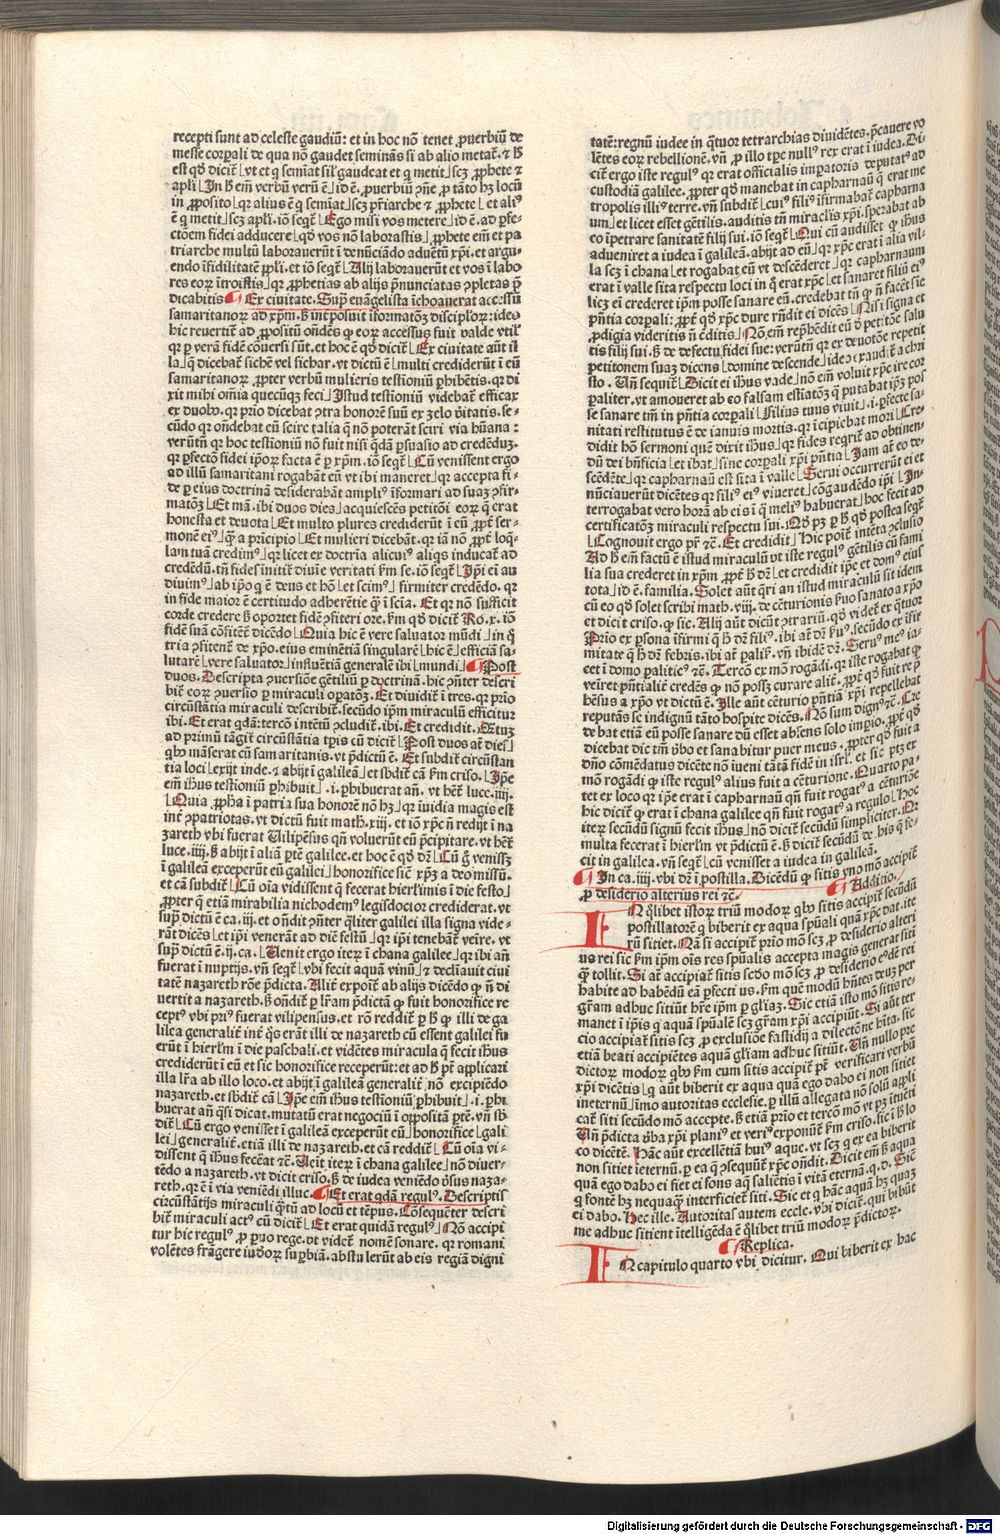 recepti sunt ad celeste gaudiū: et in hoc nō tenet ꝓuerbiū de
messe corꝑali de qua nō gaudet seminās si ab alio metat̄. ⁊ h̄
est qḋ dicit̄ ⌊vt et q seminat sil̄ gaudeat et q metit⌋ scꝫ ꝓphete ⁊
apl̄i ⌊In h̄ em̄ verbū verū ē⌋ id ē. ꝓuerbiū ꝯ̄ne ꝓ tāto hꝫ locū
in ꝓposito ⌊qꝛ alius ē q semīat⌋ scꝫ pr̄iarche ⁊ ꝓphete ⌊et ali⁹
ē q metit⌋ scꝫ apl̄i. iō seqt̄ ⌊Ego misi vos metere⌋ id ē. ad ꝑfe-
ctōem fidei adducere ⌊qḋ vos nō laborastis⌋ ꝓphete em̄ et pa
triarche multū laborauerūt ī denūciādo aduētū xp̄i. et argu-
endo īfidilitatē ppl̄i. et iō seqt̄ ⌊Alij laborauerūt et vos ī labo
res eoꝝ ītroistis⌋ qꝛ ꝓphetias ab alijs p̄nunciatas ꝯpletas p̄
dicabitis ¶ Ex ciuitate. Sup̄ euāgelista īchoauerat accessū
samaritanoꝝ ad xp̄m. h̄ int̄posuit īformatōꝫ discipl̄oꝝ: ideo
hic reuertit̄ ad ꝓpositū on̄dēs ꝙ eoꝝ accessus fuit valde vtil̄
qꝛ ꝑ verā fidē cōuersi sūt. et hoc ē qḋ dicit̄ ⌊Ex ciuitate aūt il
la⌋ q̄ dicebat̄ sichē vel sichar. vt dictū ē ⌊multi crediderūt ī eū
samaritanoꝝ ꝓpter verbū mulieris testioniū ꝑhibētis. qꝛ di
xit mihi om̄ia quecūqꝫ feci⌋ Istud testioniū videbat̄ efficax
ex duobꝫ. qꝛ prio dicebat ꝯtra honorē suū ex zelo v̄itatis. se-
cūdo qꝛ on̄debat eū scire talia q̄ nō poterāt sciri via hūana:
verūtn̄ qꝛ hoc testioniū nō fuit nisi q̄dā ꝑsuasio ad credēduꝫ.
qꝛ ꝑfectō fidei ip̄oꝝ facta ē ꝑ xp̄m. iō seqt̄ ⌊Cū venissent ergo
ad illū samaritani rogabāt eū vt ibi maneret⌋ qꝛ accepta fi-
de ꝑ eius doctrinā desiderabāt ampli⁹ īformari ad suaꝫ ꝯfir-
matōꝫ ⌊Et mā. ibi duos dies⌋ acquiescēs petitōi eoꝝ q̄ erat
honesta et deuota ⌊Et multo plures crediderūt ī eū ꝓpt̄ ser-
monē ei⁹⌋ q̄ a pricipio ⌊Et mulieri dicebāt. qꝛ iā nō ꝓpt̄ loq̄-
lam tuā credim⁹⌋ qꝛ licet ex doctria alicui⁹ aliq̄s inducat̄ ad
credēdū. tn̄ fides īnitit̄ diuīe veritati ẜm se. iō seqt̄ ⌊Ip̄i ei au
diuim⁹⌋ ab ip̄o q̄ ē deus et hō ⌊et scim⁹⌋ firmiter credēdo. qꝛ
in fide maior ē certitudo adherētie q̄ ī scīa. Et qꝛ nō sufficit
corde credere h̄ oportet fidē ꝯfiteri ore. ẜm qḋ dicit̄ Ro. x. iō
fidē suā cōfitēt̄ dicēdo ⌊Quia hic ē vere saluator mūdi⌋ in q̄
tria ꝯfitent̄ de xp̄o. eius eminētiā singularē ⌊hic ē⌋ efficiā sa-
lutarē ⌊vere saluator⌋ influētiā generalē ibi ⌊mundi⌋ ¶ Post
duos. Descripta ꝯuersiōe gētiliū ꝑ doctrinā. hic ꝯn̄ter descri
bit̄ eoꝝ ꝯuersio ꝑ miraculi oꝑatōꝫ. Et diuidit̄ ī tres. qꝛ prio
circūstātia miraculi describit̄. secūdo ip̄m miraculū efficitur
ibi. Et erat qdā: tercō intētū ꝯcludit̄. ibi. Et credidit. Q̄tuꝫ
ad primū tāgit̄ circūstātia tp̄is cū dicit̄ ⌊Post duos at̄ dies⌋
qb⁹ māserat cū samaritanis. vt p̄dictū ē. Et subdit̄ circūstan
tia loci ⌊exijt inde. ⁊ abijt ī galileā⌋ et sḃdit̄ cā ẜm criso. ⌊Ip̄e
em̄ ihūs testioniū ꝑhibuit⌋ .i. ꝑhibuerat an̄. vt hēt̄ luce. iiij.
⌊Quia ꝓpha ī patria sua honorē nō hꝫ⌋ qꝛ īuidia magis est
int̄ ꝯpatriotas. vt dictū fuit math. xiij. et iō xp̄c n̄ redijt ī na
zareth vbi fuerat Vilipēsus qn̄ voluerūt eū p̄cipitare. vt hēt̄
luce. iiij. h̄ abijt ī aliā ꝑtē galilee. et hoc ē qḋ dꝛ̄ ⌊Cū g̊ venissꝫ
ī galileā exceperūt eū galilei⌋ honorifice sic̄ xp̄ꝫ a deo missū.
et cā subdit̄ ⌊Cū oīa vidissent q̄ fecerat hierl̄imis ī die festo⌋
ꝓpter q̄ etiā mirabilia nichodem⁹ legisdoctor crediderat. vt
sup̄ dictū ē ca. iij. et on̄dit ꝯn̄ter q̄liter galilei illa signa vide-
rāt dicēs ⌊et ip̄i venerāt ad diē festū⌋ qꝛ ip̄i tenebāt̄ veīre. vt
sup̄ dictū ē. ij. ca. ⌊Venit ergo iteꝝ ī chana galilee⌋ qꝛ ibi an̄
fuerat ī nuptijs. vn̄ seqt̄ ⌊vbi fecit aquā vinū⌋ ⁊ declīauit ciui
tatē nazareth rōe p̄dicta. Alit̄ exponit̄ ab alijs dicēdo ꝙ n̄ di
uertit a nazareth. h̄ on̄dit̄ ꝑ lr̄am p̄dictā ꝙ fuit honorifice re
cept⁹ vbi pri⁹ fuerat vilipensus. et rō reddit̄ ꝑ h̄ ꝙ illi de ga
lilea generalit̄ int̄ q̄s erāt illi de nazareth cū essent galilei fu
erūt ī hierl̄m ī die paschali. et vidētes miracula q̄ fecit ihūs
crediderūt ī eū et sic honorifice receperūt: et ad h̄ pt̄ applicari
illa lr̄a ab illo loco. et abijt ī galileā generalit̄ nō excipiēdo
nazareth. et sḃdit̄ cā ⌊Ip̄e em̄ ihūs testioniū ꝑhibuit⌋ .i. ꝑhi
buerat an̄ q̄si dicat. mutatū erat negociū ī oppositā ꝑtē. vn̄ sḃ
dit̄ ⌊Cū ergo venisset ī galileā exceperūt eū⌋ honorifice ⌊gali
lei⌋ generalit̄. etiā illi de nazareth. et cā reddit̄ ⌊Cū oīa vi-
dissent q̄ ihūs fecēat ⁊c̄. Uēit iteꝝ ī chana galilee⌋ nō diuer-
tēdo a nazareth. vt dicit criso. h̄ de iudea veniēdo ꝟsus naza-
reth. qꝛ ē ī via veniēdi illuc. ¶ Et erat qdā regul⁹. Descriptis
circūstātijs miraculi q̄tū ad locū et tēpus. Cōsequēter descri
bit̄ miraculi act⁹ cū dicit̄ ⌊Et erat quidā regul⁹⌋ Nō accipi
tur hic regul⁹ ꝓ ꝑuo rege. vt videt̄ nomē sonare. qꝛ romani
volētes frāgere iudoꝝ suꝑbiā. abstulerūt ab eis regiā digni
tatē: regnū iudee in q̄tuor tetrarchias diuidētes. p̄cauere vo
lētes eoꝝ rebellionē. vn̄ ꝓ illo tp̄e null⁹ rex erat ī iudea. Di-
cit̄ ergo iste regul⁹ qꝛ erat officialis imꝑatoris deputat⁹ ad
custodiā galilee. ꝓpter qḋ manebat in capharnaū q̄ erat me
tropolis illi⁹ terre. vn̄ subdit̄ ⌊cui⁹ fili⁹ īfirmabat̄ capharna
um⌋ et licet esset gētilis. auditis tn̄ miracl̄is xp̄i. sperabat ab
eo īpetrare sanitatē filij sui. iō seqt̄ ⌊Qui cū audisset ꝙ ihūs
adueniret a iudea ī galileā. abijt ad eū⌋ qꝛ xp̄c erat ī alia vil-
la scꝫ ī chana ⌊et rogabat eū vt descēderet⌋ qꝛ capharnaum
erat ī valle sita respectu loci in q̄ erat xp̄c ⌊et sanaret filiū ei⁹⌋
licꝫ ei crederet ip̄m posse sanare eū. credebat tn̄ ꝙ n̄ facēt sic
p̄ntia corꝑali: ꝓpt̄ qḋ xp̄c dure rn̄dit ei dicēs ⌊Nisi signa et
ꝓdigia videritis n̄ c̄ditis⌋ Nō em̄ rephēdit eū ꝙ pet̄: tōe salu
tis filij sui. h̄ de defectu fidei sue: verūtn̄ qꝛ ex deuotōe repetit
petitonem suaꝫ dicens ⌊domine descende⌋ ideo ⌊exaudit̄ a chri
sto. Vn̄ sequit̄ ⌊Dicit ei ihūs vade⌋ nō em̄ voluit xp̄c ire cor
paliter. vt amoueret ab eo falsam estiatōꝫ q̄ putabat ip̄ꝫ pos
se sanare tm̄ in p̄ntia corꝑali ⌊filius tuus viuit⌋ .i. ꝑfecte sa-
nitati restitutus ē de ianuis mortis. qꝛ īcipiebat mori ⌊Cre-
didit hō sermoni quē dixit ihūs⌋ qꝛ fides reqrit̄ ad obtinen-
dū dei bn̄ficia ⌊et ibat⌋ sine corꝑali xp̄i p̄ntia ⌊Iam at̄ eo de-
scēdēte⌋ qꝛ capharnaū est sita ī valle ⌊Serui occurrerūt ei et
nūciauerūt dicētes qꝛ fili⁹ ei⁹ viueret⌋ cōgaudēdo ip̄i ⌊In-
terrogabat vero horā ab eis ī q̄ meli⁹ habuerat⌋ hoc fecit ad
certificatōꝫ miraculi respectu sui. Qḋ pꝫ ꝑ h̄ qḋ postea seqt̄
⌊Cognouit ergo pr̄ ⁊c̄. Et credidit⌋ Hic poit̄ intēta ꝯclusio
Ad h̄ em̄ factū ē istud miraculū vt iste regul⁹ gētilis cū fami
lia sua crederet in xp̄m. ꝓpt̄ h̄ dꝛ̄ ⌊et credidit ip̄e et dom⁹ eius
tota⌋ id ē. familia. Solet aūt q̄ri an istud miraculū sit idem
cū eo qḋ solet scribi math. viij. de cēturionis ẜuo sanato a xp̄o
et dicit criso. ꝙ sic. Alij aūt dicūt ꝯtrariū. qḋ videt̄ ex q̄tuor
Prio ex ꝑsona īfirmi q̄ h̄ dꝛ̄ fili⁹. ibi at̄ dꝛ̄ ẜu⁹. secūdo ex īfir
mitate q̄ h̄ dꝛ̄ febris. ibi at̄ ꝑalis̄. vn̄ ibidē dꝛ̄. Seru⁹ me⁹ ia-
cet ī domo ꝑalitic⁹ ⁊c̄. Tercō ex mō rogādi. qꝛ iste rogabat ꝙ
veīret p̄ntialit̄ credēs ꝙ nō possꝫ curare alit̄. ꝓpt̄ qḋ fuit re p̄
hēsus a xp̄o vt dictū ē. Ille aūt cēturio p̄ntiā xp̄i repellebat
reputās se indignū tāto hospite dicēs. Nō sum dign⁹ ⁊c̄. Cre
debat etiā eū posse sanare dū esset absens solo imꝑio. ꝓpt̄ qḋ
dicebat dic tm̄ ꝟbo et sanabitur puer meus. ꝓpter qḋ fuit a
dn̄o cōmēdatus dicēte nō iueni tātā fidē in isrl̄. et sic ptꝫ ex
mō rogādi ꝙ iste regul⁹ alius fuit a cēturione. Quarto pa-
tet ex loco qꝛ ip̄e erat ī capharnaū qn̄ fuit rogat⁹ a cēturiōe
hic dicit̄ ꝙ erat ī chana galilee qn̄ fuit rogat⁹ a regulo ⌊Hoc
iteꝝ secūdū signū fecit ihūs⌋ nō dicit̄ secūdū simpliciter. qꝛ
multa fecerat ī hierl̄m vt p̄dictū ē. h̄ dicit̄ secūdū de his q̄ fe-
cit in galilea. vn̄ seqt̄ ⌊cū venisset a iudea in galileā.
¶ In ca. iiij. vbi dꝛ̄ ī postilla. Dicēdū ꝙ sitis vno mō accipit̄
ꝓ desiderio alterius rei ⁊c̄. ¶ Additio.
IN q̄libet istoꝝ triū modoꝝ qb⁹ sitis accipit̄ secūdū
postillatorē q̄ biberit ex aqua sp̄uali quā xp̄c dat. ite
rū sitiet. Nā si accipit̄ prio mō scꝫ ꝓ desiderio alteri
us rei sic ẜm ip̄m oīs res sp̄ualis accepta magis generat siti
q̄ tollit. Si at̄ accipiat̄ sitis scdo mō scꝫ ꝓ desiderio eiusdē rei
habite ad habēdū eā ꝑfecti us. ẜm quē modū hn̄tes deuꝫ per
gr̄am adhuc sitiūt hr̄e ip̄m ꝑ gl̄iaꝫ. Sic etiā isto mō sitis re-
manet ī ip̄is q̄ aquā sp̄ualē scꝫ gr̄am xp̄i accipiūt. Si aūt ter
cio accipiat̄ sitis scꝫ ꝓ exclusiōe fastidij a dilectōne hita. sic
etiā beati accipiētes aquā gl̄iam adhuc sitiūt. Vn̄ nullo pre
dictoꝝ modoꝝ qb⁹ ẜm eum sitis accipit̄ pt̄ verificari verbū
xp̄i dicētis ⌊q aūt biberit ex aqua quā ego dabo ei non sitiet
ineternū⌋ īmo autoritas ecclesie. ꝑ illū allegata nō solū appli
cat̄ siti secūdo mō accepte. h̄ etiā prio et tercō mō vt pꝫ ītuēti
Vn̄ p̄dicta ꝟba xp̄i plani⁹ et veri⁹ exponunt̄ ẜm criso. sic ī h̄ lo
co dicētē. Hāc aūt excellētiā hui⁹ aque. vt scꝫ q ex ea biberit
non sitiet ieternū. ꝑ ea q̄ ꝯsequūt̄ xp̄c on̄dit. Dicit em̄ h̄ aqua
quā ego dabo ei fiet ei fons aq̄ saliētis ī vitā eternā. q. d. Sic̄
q̄ fontē hꝫ nequaq̄ interficiet̄ siti. Sic et q̄ hāc aquā hꝫ quaꝫ
ei dabo. Hec ille. Autoritas autem eccle. vbi dicit̄. qui bibūt
me adhuc sitient ītelligēda ē q̄libet triū modoꝝ p̄dictoꝝ.
¶ Replica.
IN capitulo quarto vbi dicitur. Qui biberit ex hac
Digitalisierung gefördert durch die Deutsche Forschungsgemeinschaft - DFG